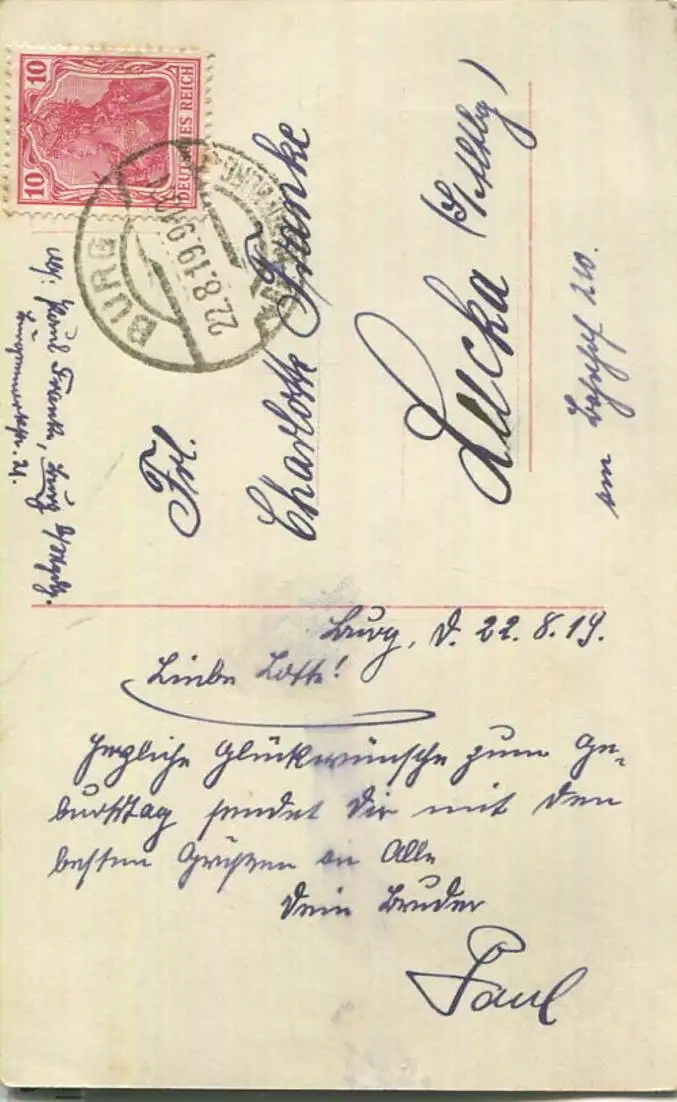 10
10
DEUTSCHES REICH
BURG
22.8.19.9-10
Abs: Paul Franke, Burg b/Magdg.
24.
Frl.
Charlotte Franke
Lucka (S/Altbg)
am Bahnhof 210.
Burg, d. 22.8.19.
Liebe Lotte!
Herzliche Glückwünsche zum Ge-
burtstag sendet Dir mit den
besten Grüßen an Alle
Dein Bruder
Paul